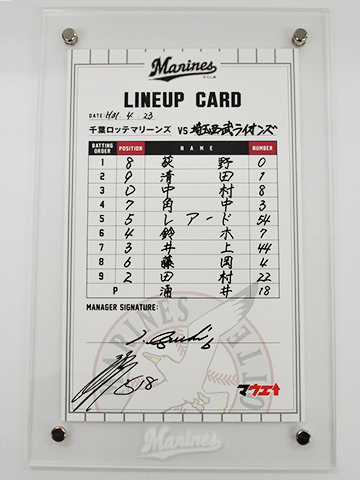 Marines
LINEUP CARD
DATE: H31. 4. 23
千葉ロッテマリーンズ VS 埼玉西武ライオンズ
BATTING ORDER POSITION NAME NUMBER
1 8 荻野 0
2 9 清田 1
3 D 中村 8
4 7 角中 3
5 5 レアード 54
6 4 鈴木 7
7 3 井上 44
8 6 藤岡 4
9 2 田村 22
P 涌井 18
MANAGER SIGNATURE:
マウエ↑
Marines